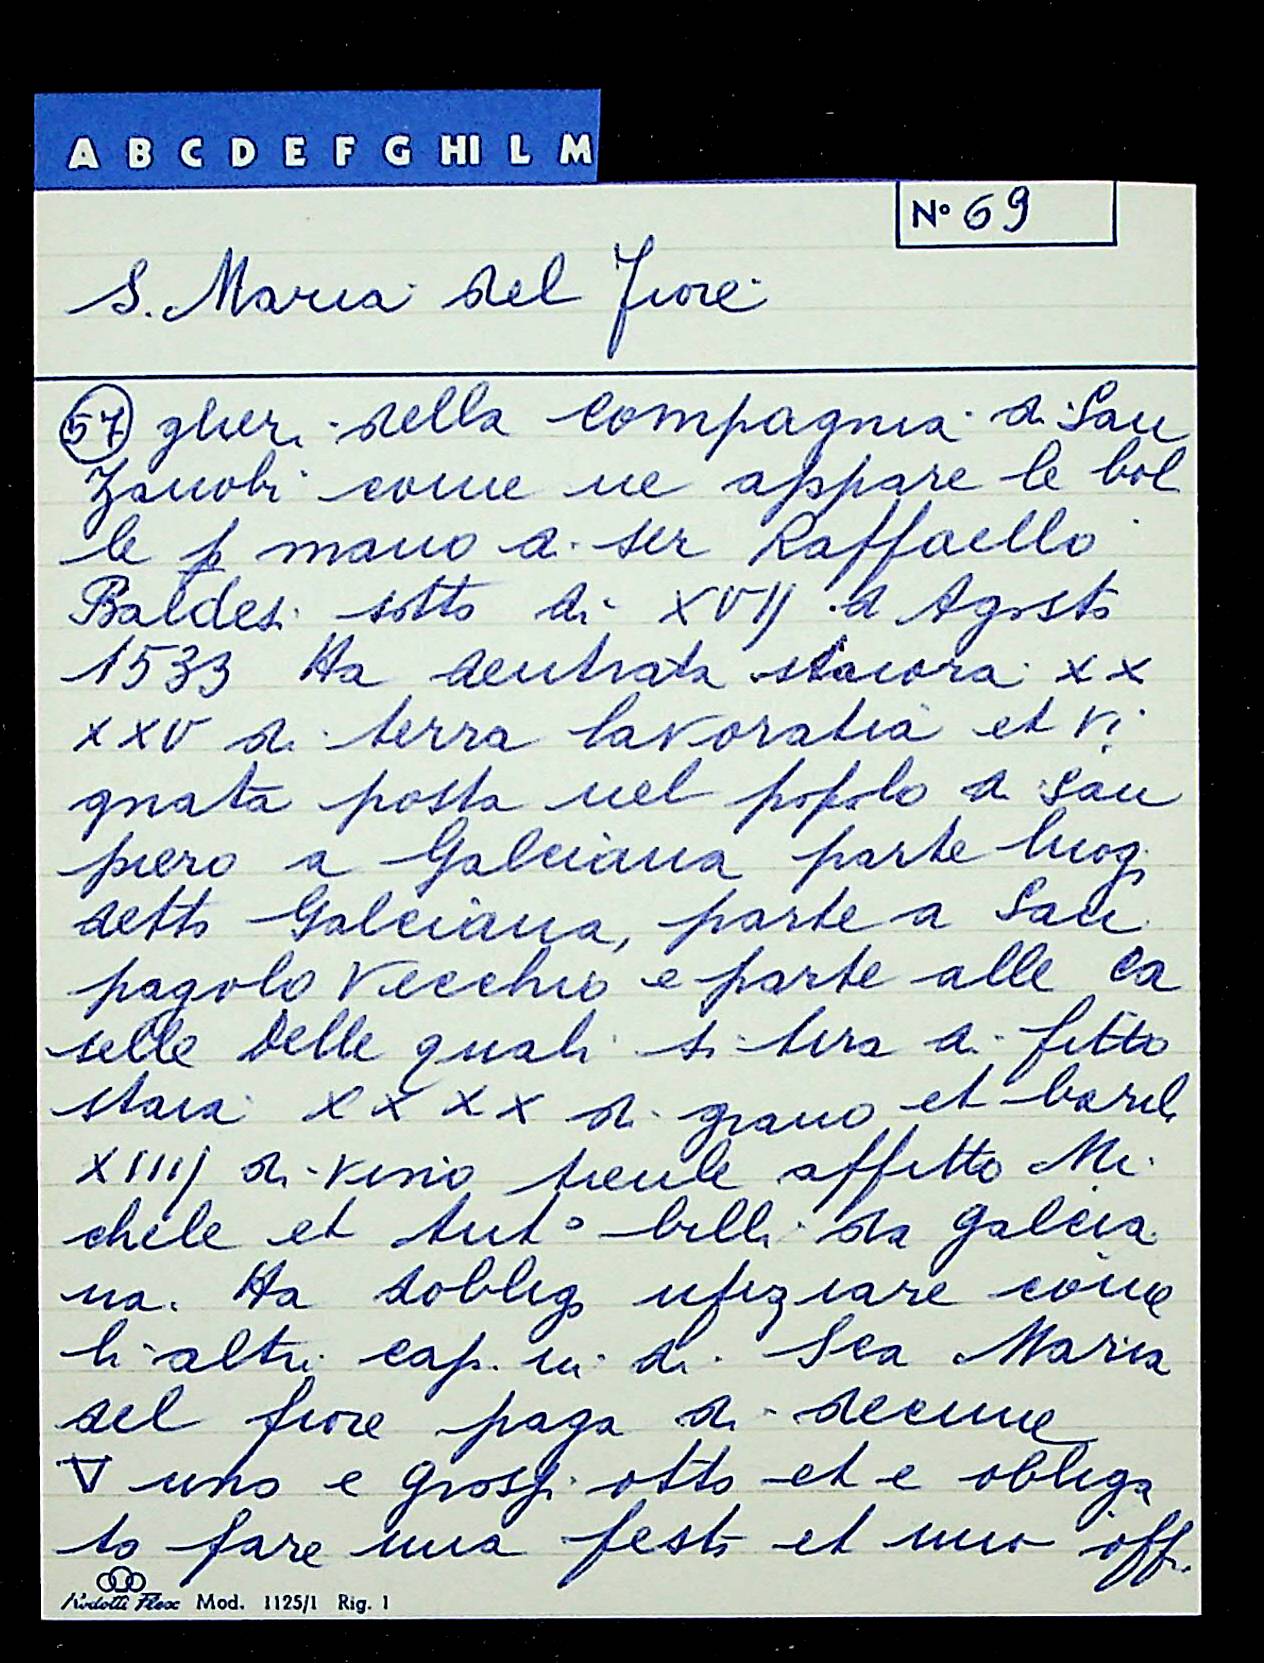 A B C D E F G HI L M
N° 69
S. Maria del Fiore
57 glieri della Compagnia di San
Zanobi come ne appare le bol
le p mano di ser Raffaello
Baldesi sotto di XVIJ d Agosto
1533 Ha dentrata staiora x x
x x v di terra lavoratia et vi
gnata posta nel popolo di San
piero a Galciana parte luog.
detto Galciana, parte a San
pagolo Vecchio e parte alle ca
selle Delle quali si tira di fitto
staia x x x x di grano et barili
XIIIJ di vino tienle affitto Mi
chele et Ant° billi da Galcia
na. Ha dobligo ufiziare come
li altri cap.ni di Sca Maria
del fiore paga di decime
∇ uno e grossi otto et e obliga
to fare una festa et uno off.
Mod. 1125/1 Rig. 1